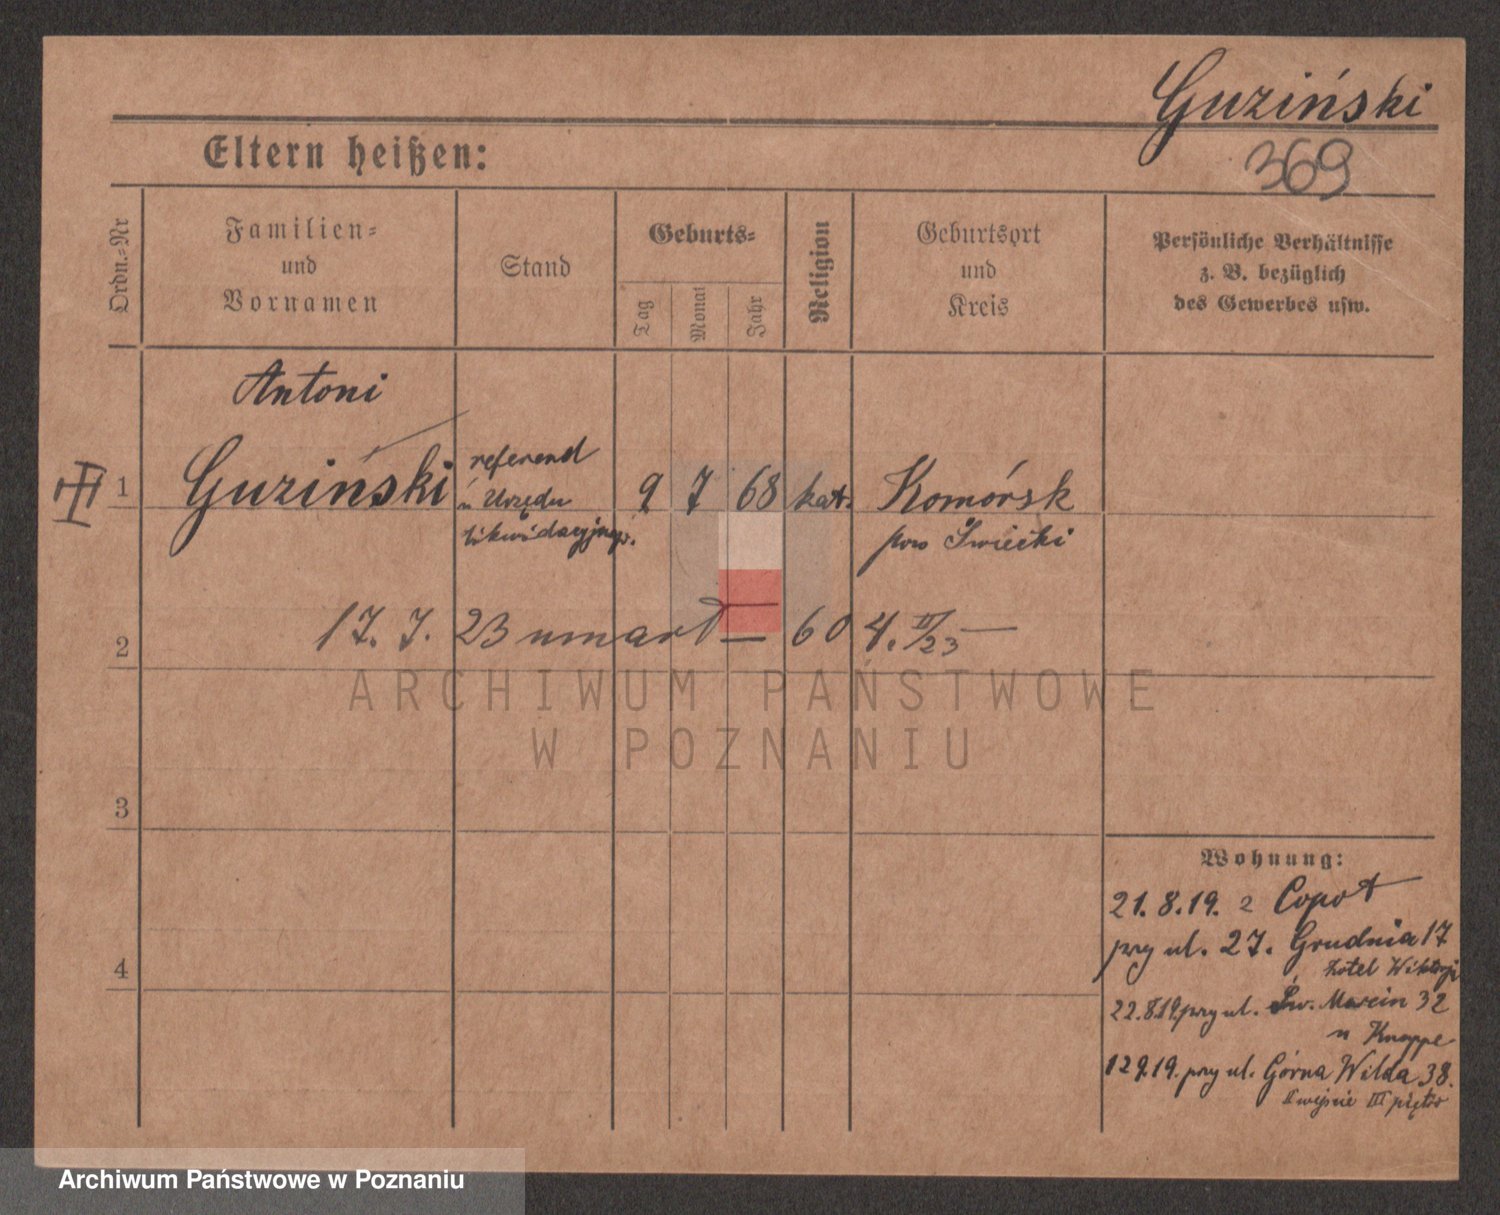 Guziński
369
Eltern heißen:
Ordn.-Nr
Familien-
und
Vornamen
Stand
Geburts-
Tag
Monat
Jahr
Religion
Geburtsort
und
Kreis
Persönliche Verhältnisse
z. B. bezüglich
des Gewerbes usw.
Antoni
1 Guziński
referend
w Urzędu
likwidacyjnego.
9 7 68 kat. Komórsk
pow Świecki
2 17. 7. 23 umarł — 60 4. II/23 —
ARCHIWUM PAŃSTWOWE
W POZNANIU
3
4
Wohnung:
21. 8. 19. z Copot
przy ul. 27. Grudnia 17
hotel Wiktorji
22.8.19 przy ul. Św. Marcin 32
u Knappe
12 9.19. przy ul. Górna Wilda 38.
II wejście III piętro
Archiwum Państwowe w Poznaniu